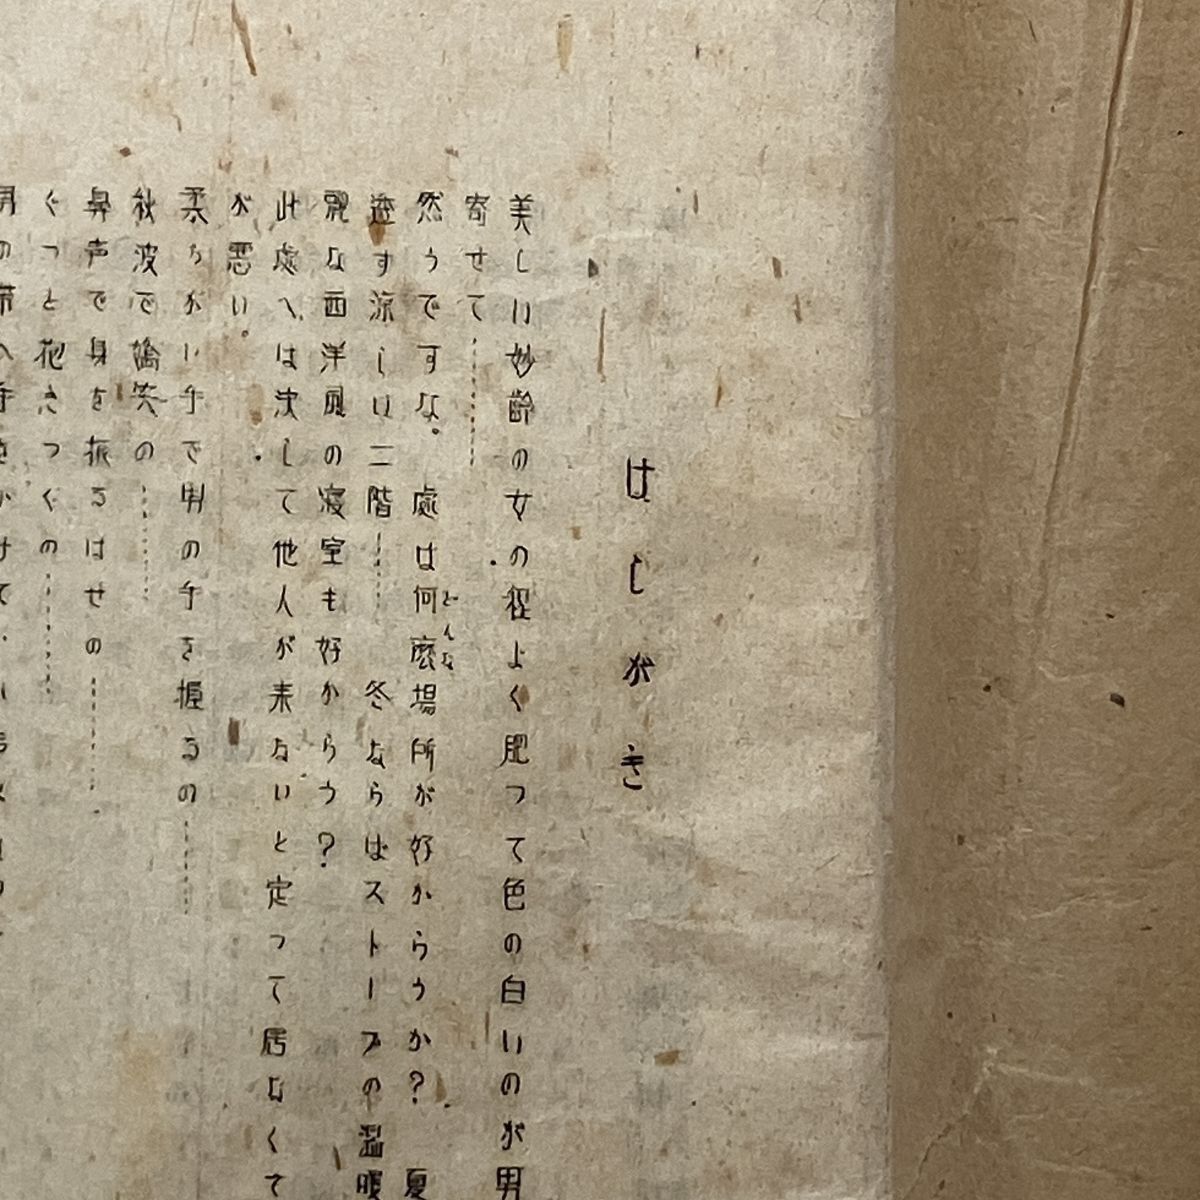 はしがき
美しい妙齢の女の程よく肥つて色の白いのが男
寄せて…………
然うですな。 處は何麽場所が好からうか? 夏
どんな
す涼しい二階…… 冬ならばストーブの温暖
麗な西洋風の寝室も好からう?
此處へは決して他人が来ないと定つて居なくて
が悪い。
柔らかい手で男の手を握るの……
秋波で嬌笑の……
鼻声で身を振るはせの……
ぐつと抱きつくの……